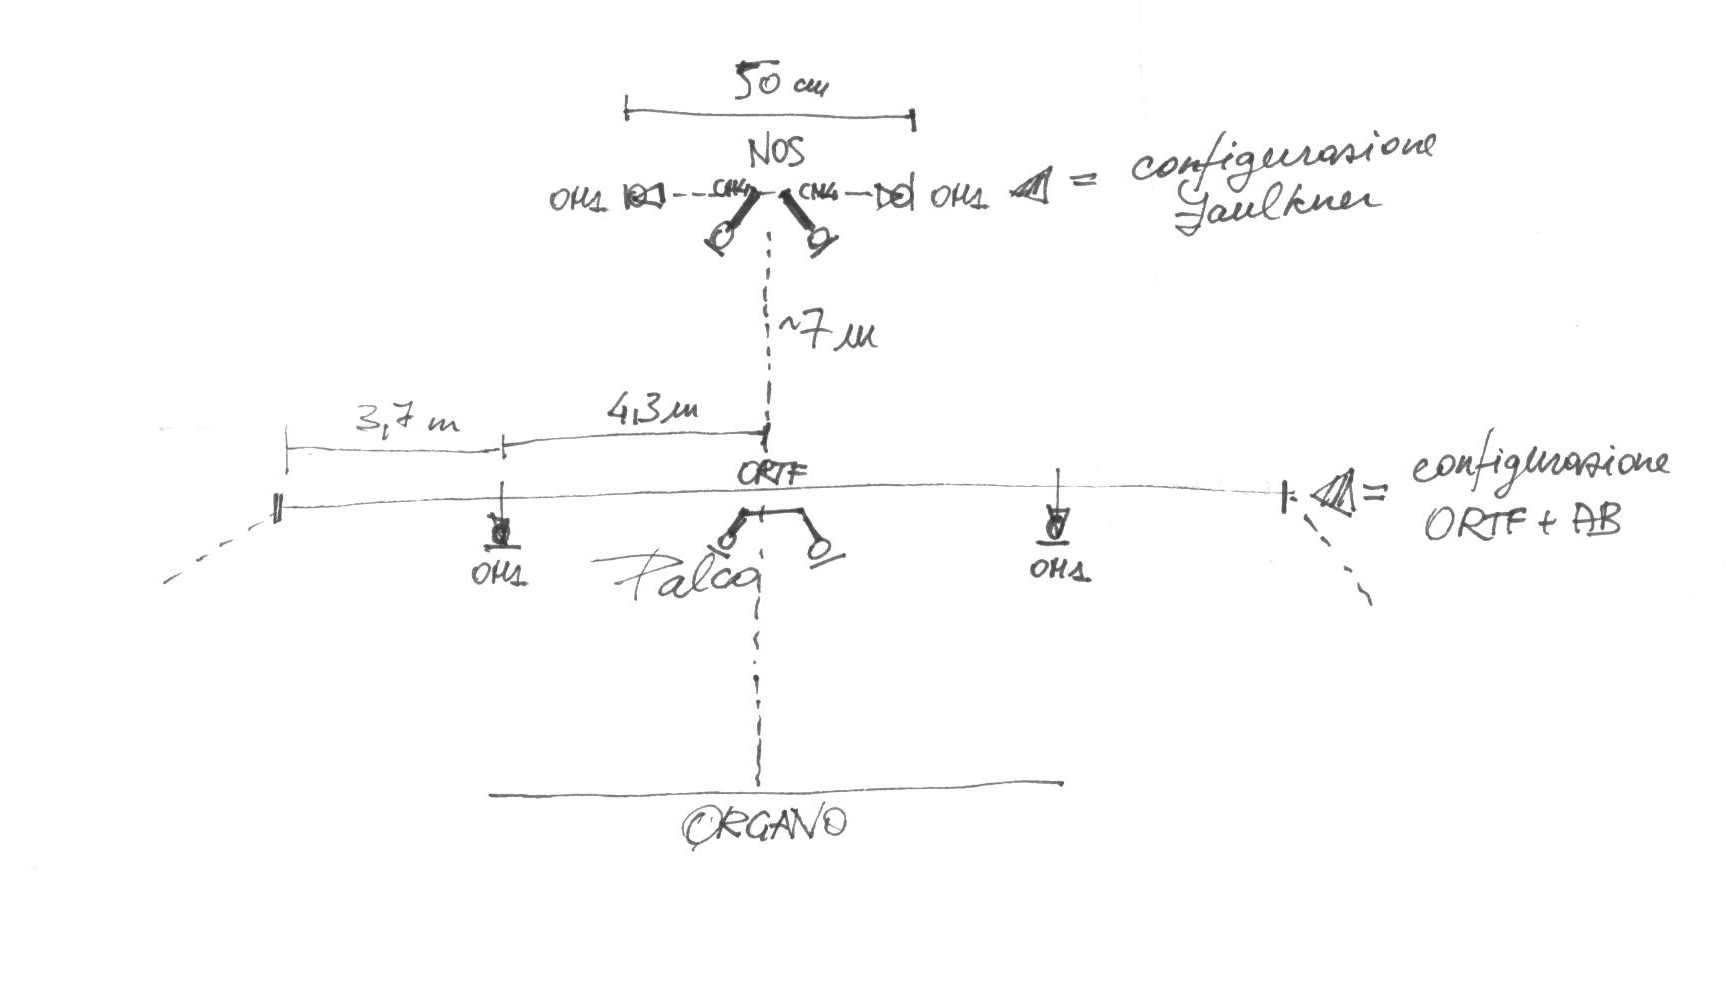 50 cm
NOS
OM1 CM4 CM4 OM1 = configurazione
Faulkner
~7 m
3,7 m 4,3 m
ORTF
= configurazione
ORTF + AB
Palco
OM1 OM1
ORGANO